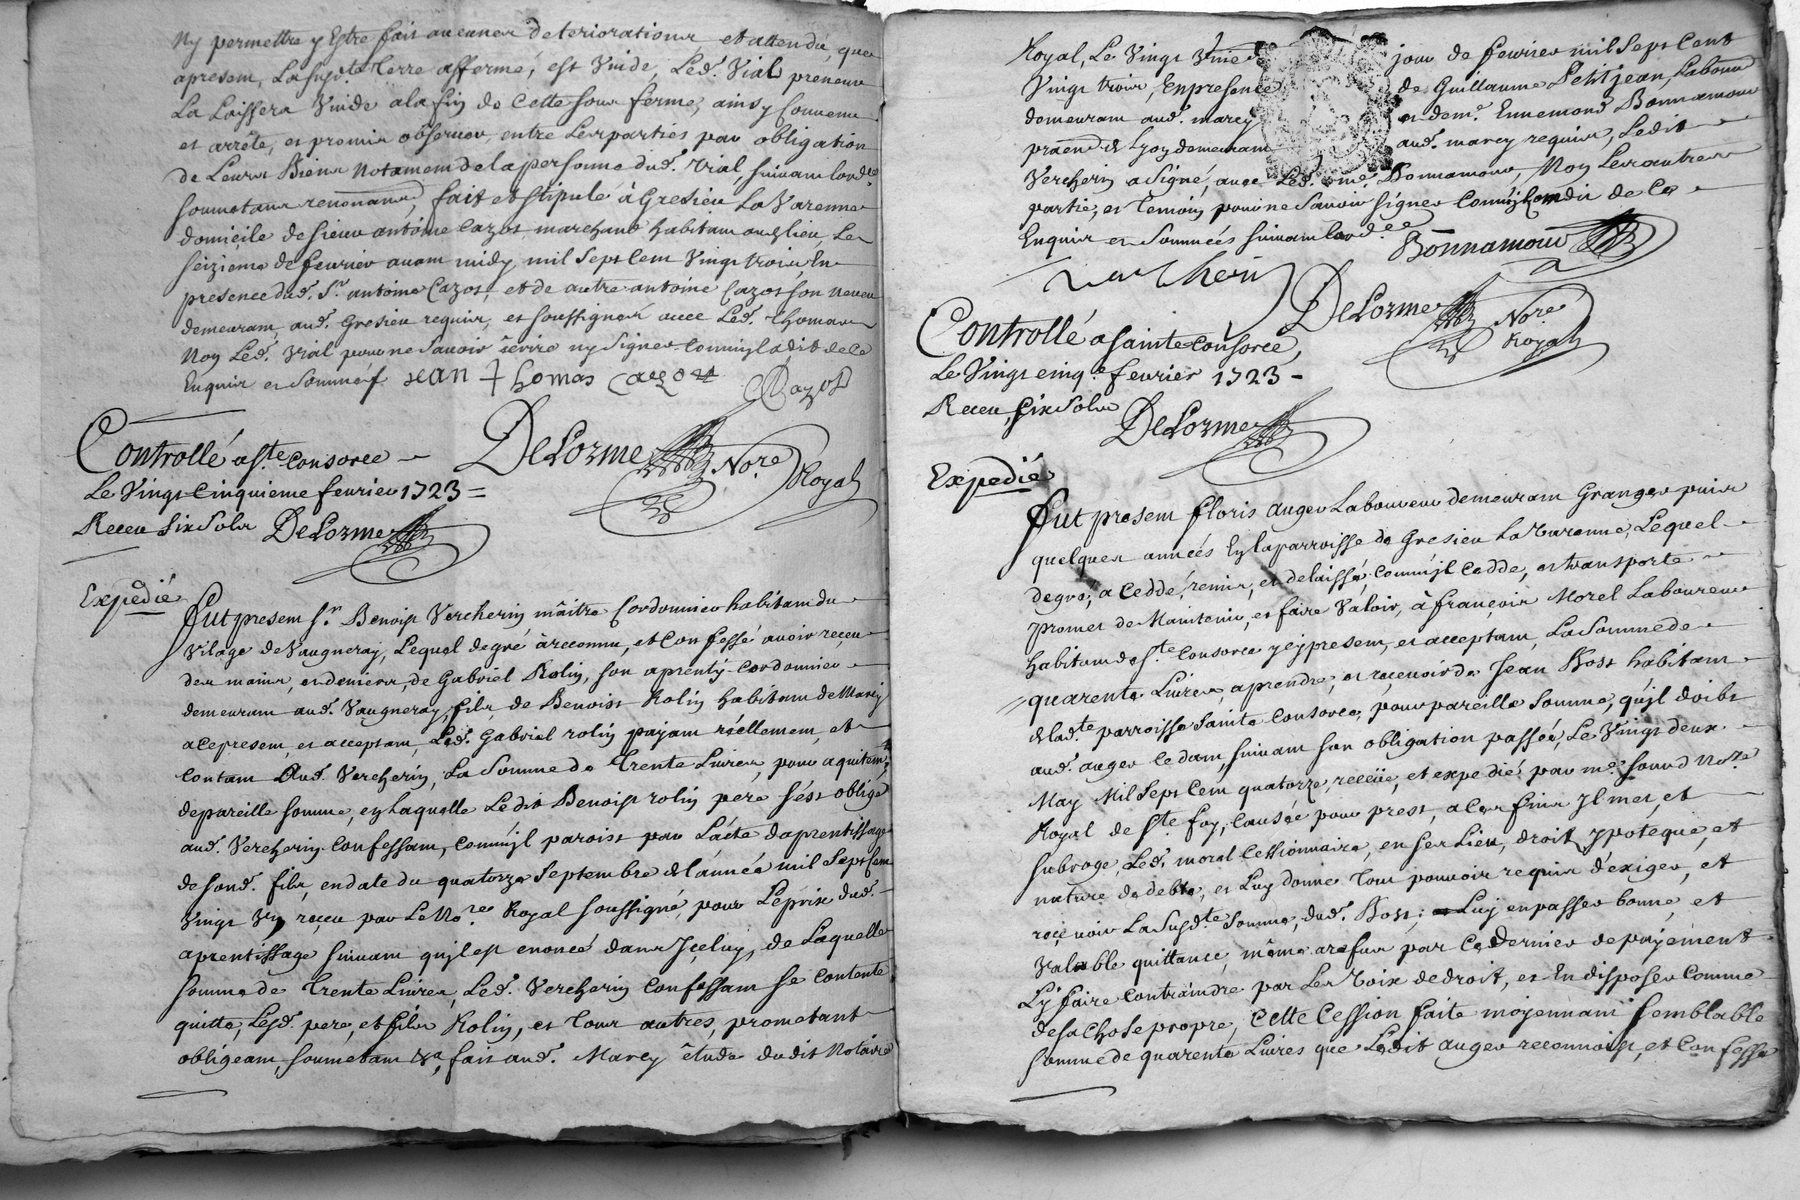 Ny permettre y Estre fait aucunes deteriorations et attendu que
apresent, La susd.te Terre affermé, est Vuide, Led.t Vial preneur
La Laissera Vuide a la fin de Cette sous ferme, ainsy Convenu
et arrêté, et promis observer, entre Les parties par obligation
de Leurs Biens Notament de la personne dud.t Vial, suivant lord.ce
soumetans renonans, fait et stipulé à Gresieu La Varenne
domicile de sieur antoine Cazot, marchand habitant aud. lieu, Le
seizieme de fevrier avant midy, mil sept cent Vingt trois, En
presence dud.t S.r antoine Cazot, et de autre antoine Cazot son neveu
demeurant aud.t Gresieu requis, et soussignés avec Led.t thomas
Non Led.t Vial pour ne Savoir écrire ny Signer Comm'jl a dit de Ce
Enquis et Sommé/. jean thomas Cazot Cazot
Controllé a S.te Consorce DeLorme No.re Royal
Le Vingt Cinquieme fevrier 1723 =
Receu six Sols DeLorme
Expedié
Fut present S.r Benoist Vercherin maître Cordonnier habitant du
Vilage de Vaugneray, Lequel de gré à reconnu, et Confessé avoir receu
des mains, et deniers, de Gabriel Rolin, son aprenty Cordonnier
demeurant aud.t Vaugneray, fils de Benoist Rolin habitant de Marcy
a ce present, et acceptant, Led.t Gabriel rolin payant réellement, et
Contant Aud.t Vercherin, La Somme de Trente Livres, pour aquitem.t
de pareille somme, en Laquelle Ledit Benoist rolin pere s'ést obligé
aud.t Vercherin Confessant, Comm'jl paroist par L'acte d'aprentissage
de sond.t fils, en date du quatorze Septembre de l'année mil Sept Cent
Vingt Vn, receu par Le No.re Royal soussigné, pour Le prix dud.t
aprentissage suivant qu'jl est enoncé dans Jceluy, de Laquelle
somme de Trente Livres, Led.t Vercherin Confessant se contente
quitte, Lesd.ts pere, et fils Rolin, et Tous autres, prometant
obligeant, soumetant &a, fait aud.t Marcy étude dudit Notaire
Royal, Le Vingt Unie jour de fevrier mil Sept Cent
Vingt trois, En presence de Guillaume Petitjean, Laboureur
demeurant aud.t marcy et dem.t Ennemond Bonnamour
demeurant aud.t marcy requis, Ledit
Vercherin a Signé, avec Led.t Bonnamour, Non Les autres
partie, et Temoin pour ne Savoir Signer Comm'jls ont dit de Ce
Enquis et Sommés suivant lord.ce
Vercherin Bonnamour
Controllé a Sainte Consorce, DeLorme No.re Royal
Le Vingt cinq.e fevrier 1723 -
Receu Six Sols DeLorme
Expedié
Fut present floris auger Laboureur demeurant Granger puis
quelques années En la parroisse de Gresieu La Varenne, Lequel
de gré, a Ceddé, remis, et delaissé, Comm'jl Cedde, et transporte
promet de Maintenir, et faire Valoir, à françois Morel Laboureur
habitant de S.te Consorce y ey present, et acceptant, La Somme de
quarente Livres, a prendre, et reçevoir de Jean Bost habitant
de lad.te parroisse Sainte Consorce, pour pareille somme, qu'jl doibt
aud.t auger cedant, suivant son obligation passée, Le Vingt deux
May Mil Sept Cent quatorze, receüe, et expedié par m.e No.re
Royal de S.te foy, Causée pour prest, a Ces fins Jl met, et
subroge, Led.t morel Cessionnaire, en ses Lieu, droit ypoteque, et
nature de debte, et Luy donne Tout pouvoir requis d'exiger, et
reçevoir La Susd.te Somme, dud.t Bost; Luy en passer bonne, et
Valable quittance, même a refus par Ce dernier de payement
L'y faire Contraindre par Les Voix de droit, et En disposer Comme
de sa Chose propre, Cette Cession faite moyennant semblable
somme de quarente Livres que Ledit auger reconnoist, et Confesse